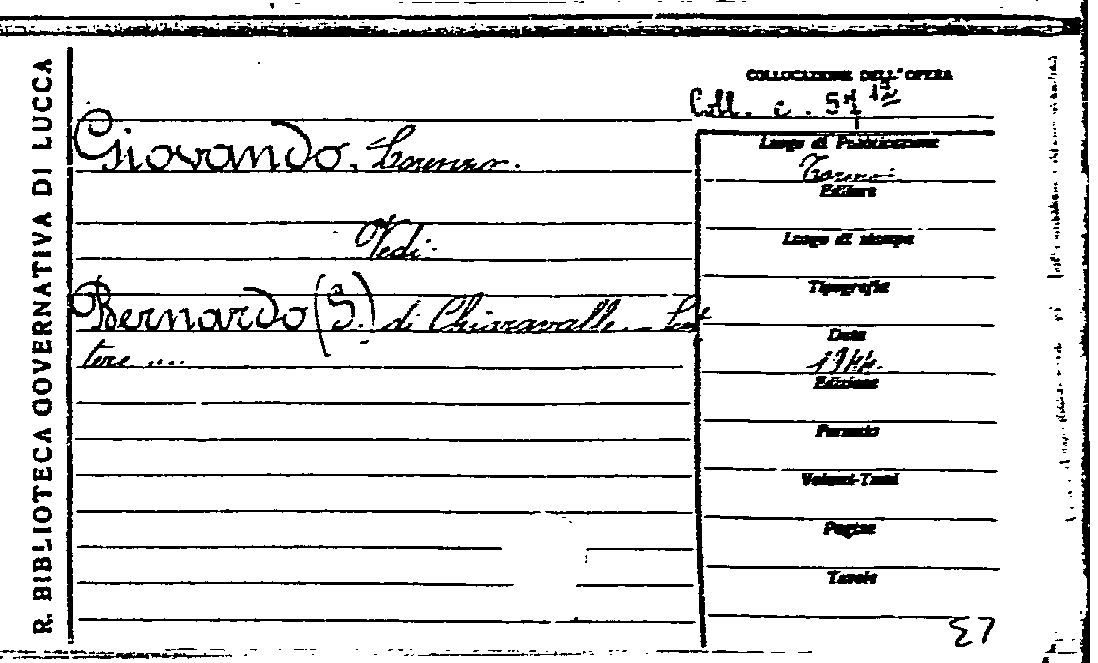 R. BIBLIOTECA GOVERNATIVA DI LUCCA
COLLOCAZIONE DELL'OPERA
Coll. c. 51 12
Giovando, Lorenzo.
Vedi:
Bernardo (S.) di Chiaravalle. - Let
tere ....
Luogo di Pubblicazione
Torino
Editore
Luogo di stampa
Tipografia
Data
1944.
Edizione
Formato
Volumi-Tomi
Pagine
Tavole